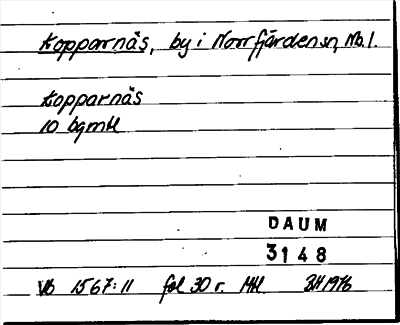 Kopparnäs, by i Norrfjärdens sn, Nb.l.
Kopparnäs
10 bgmtl
DAUM
3148
Vb 1567:11 fol 30 r. Mtl BH 1976